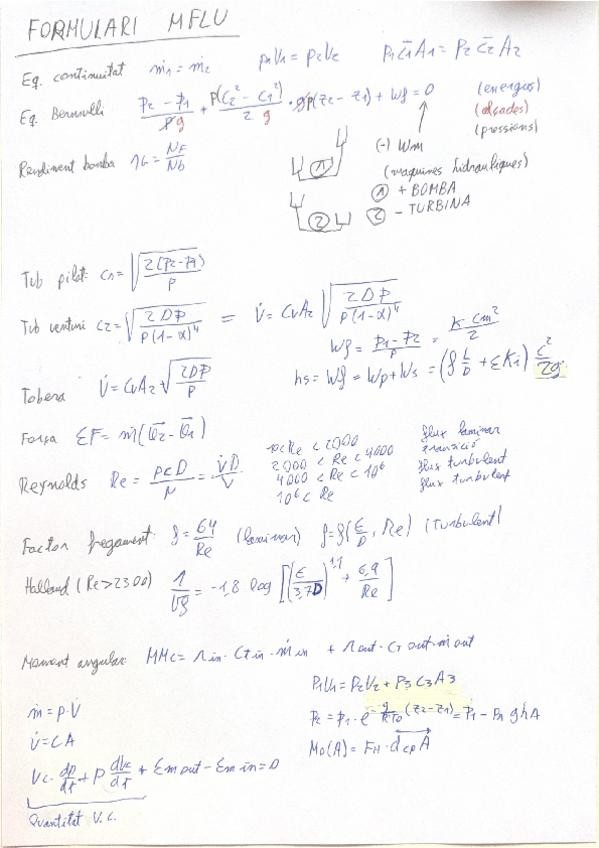 FORMULARI MFLU
Eq. continuitat ṁ1 = ṁ2 ρ1V̇1 = ρ2V̇2 ρ1c̄1A1 = ρ2c̄2A2
Eq. Bernoulli (p2 - p1)/(ρg) + ρ(c2² - c1²)/(2g) · gρ(z2 - z1) + Wf = 0 (energies)
(alçades)
(pressions)
(-) Wm
Rendiment bomba ηb = NF/Nb
(maquines hidrauliques)
① + BOMBA
② - TURBINA
① ②
Tub pitot: c1 = √(2(p2-p1)/ρ)
Tub venturi c2 = √(2Δp/ρ(1-α)⁴) = V̇ = CvA2 √(2Δp/ρ(1-α)⁴)
Wf = (p1 - p2)/ρ = K cm²/2
Tobera V̇ = CvA2 √(2Δp/ρ)
hs = Wf = Wp + Ws = (f L/D + ΣKi) c²/2g
Força ΣF = ṁ(v⃗2 - v⃗1)
Reynolds Re = ρcD/μ = V̇D/ν
Re < 2000 flux laminar
2000 < Re < 4000 transició
4000 < Re < 10⁶ flux turbulent
10⁶ < Re flux turbulent
Factor fregament: f = 64/Re (laminar) f = f(ε/D, Re) (turbulent)
Halland (Re > 2300) 1/√f = -1,8 log [(ε/3,7D)^1,1 + 6,9/Re]
Moment angular: MMc = rin · ct in · ṁ in + rout · cT out · ṁ out
ρ1V̇1 = ρ2V̇2 + ρ3c3A3
ṁ = ρ · V̇
p2 = p1 · e^(-g/RT0 (z2 - z1)) = p1 - ρn ghA
V̇ = cA
Mo(A) = FH · dcpA
Vc · dρ/dt + ρ dVc/dt + Σṁ out - Σṁ in = 0
Quantitat V.C.